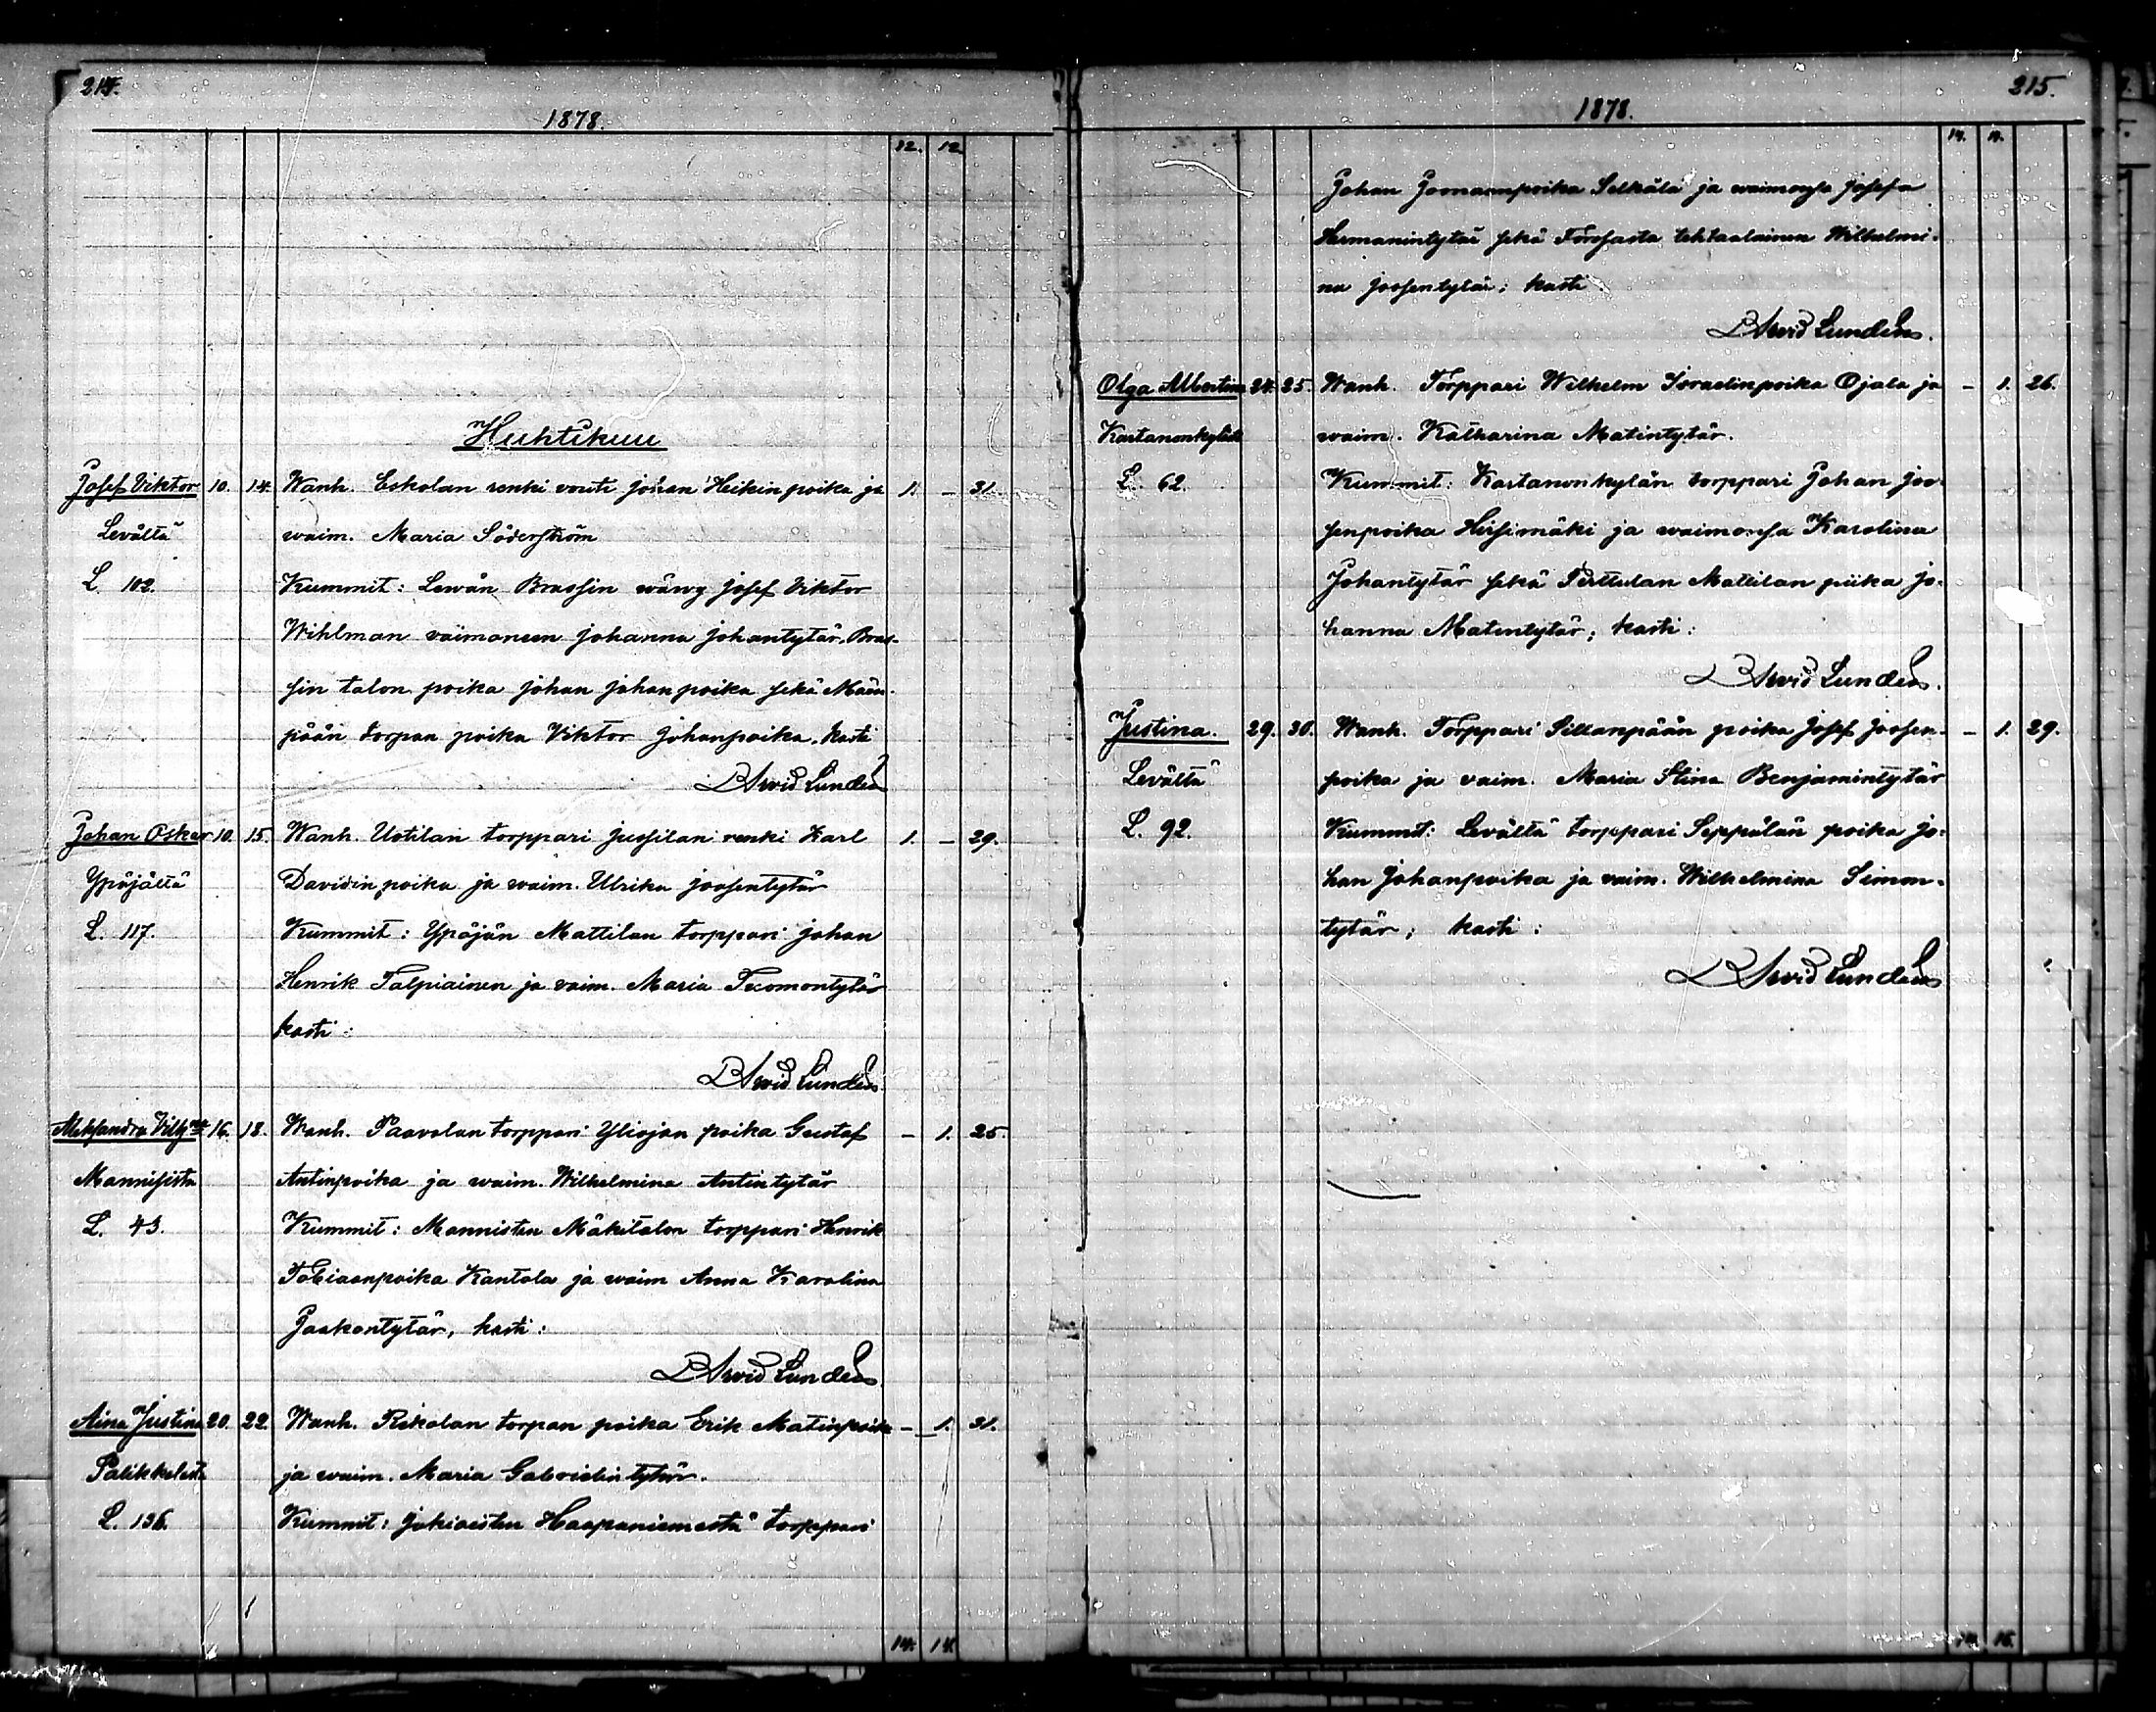 214.
1878.
12. 12.
Huhtikuu
Josef Viktor 10. 14. Wanh. Eskolan renki vouti Johan Heikinpoika ja 1. – 31.
Levältä waim. Maria Söderström
L. 102. Kummit: Lewän Brassin wäwy Josef Viktor
Wihlman vaimoneen Johanna Johantytär, Bras-
sin talon poika Johan Johanpoika sekä
pään torpan poika Viktor Johanpoika, kasti
Arvid Lundén
Johan Oskar 10. 15. Wanh. Uotilan torppari Jussilan renki Karl 1. – 29.
Ypäjältä Davidinpoika ja waim. Ulrika Joosentytär
L. 117. Kummit: Ypäjän Mattilan torppari Johan
Henrik Talpiainen ja vaim. Maria Tuomontytär
kasti:
Arvid Lundén
Aleksandra Vilh:na 16. 18. Wanh. Paavolan torppari Yliojan poika Gustaf – 1. 25.
Mannisista Antinpoika ja waim. Wilhelmina Antintytär
L. 43. Kummit: Mannisten Mäkitalon torppari Henrik
Tobiaanpoika Kantola ja waim Anna Karolina
Jaakontytär, kasti:
Arvid Lundén
Aina Justina 20. 22. Wanh. Rekolan torpan poika Erik Matinpoika – 1. 31.
Palikkalasta ja waim. Maria Gabrielintytär.
L. 136. Kummit: Jokioisten Haapaniemestä torppari
14. 14.
215.
1878.
14. 14.
Johan Joonaanpoika Selkälä ja waimonsa Josefa
Hermanintytär sekä Forssasta tehtaalainen Wilhelmi-
na Joosentytär; kasti
Arvid Lundén.
Olga Albertina 24. 25. Wanh. Torppari Wilhelm Israelinpoika Ojala ja – 1. 26.
Kartanonkylästä waim. Katharina Matintytär.
L. 62. Kummit: Kartanonkylän torppari Johan Joo-
senpoika Hirsimäki ja waimonsa Karolina
Johantytär sekä Perttulan Mattilan piika Jo-
hanna Matintytär; kasti:
Arvid Lundén.
Justina. 29. 30. Wanh. Torppari Sillanpään poika Josef Joosen- – 1. 29.
Levältä poika ja vaim. Maria Stina Benjamintytär
L. 92. Kummit: Levältä torppari Seppälän poika Jo-
han Johanpoika ja vaim. Wilhelmina Simon-
tytär; kasti:
Arvid Lundén
14. 16.